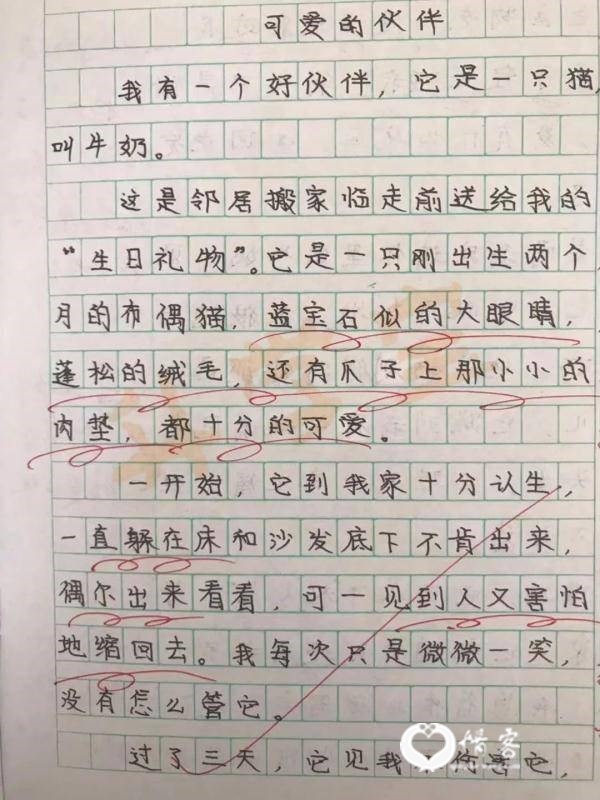 可爱的伙伴
我有一个好伙伴，它是一只猫，
叫牛奶。
这是邻居搬家临走前送给我的
“生日礼物”。它是一只刚出生两个
月的布偶猫，蓝宝石似的大眼睛，
蓬松的绒毛，还有爪子上那小小的
肉垫，都十分的可爱。
一开始，它到我家十分认生，
一直躲在床和沙发底下不肯出来，
偶尔出来看看，可一见到人又害怕
地缩回去。我每次只是微微一笑，
没有怎么管它。
过了三天，它见我 伤害它，
惜客